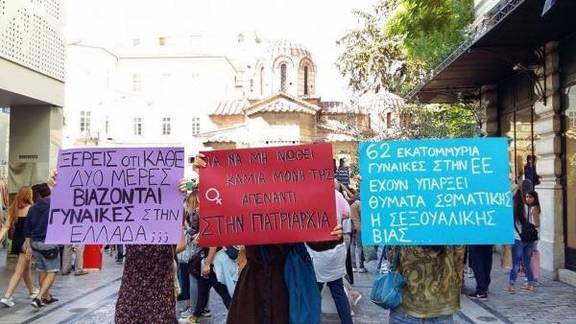 ΞΕΡΕΙΣ ΟΤΙ ΚΑΘΕ
ΔΥΟ ΜΕΡΕΣ
ΒΙΑΖΟΝΤΑΙ
ΓΥΝΑΙΚΕΣ ΣΤΗΝ
ΕΛΛΑΔΑ;;;
ΓΙΑ ΝΑ ΜΗ ΝΙΩΘΕΙ
ΚΑΜΙΑ ΜΟΝΗ ΤΗΣ
ΑΠΕΝΑΝΤΙ
ΣΤΗΝ ΠΑΤΡΙΑΡΧΙΑ
62 ΕΚΑΤΟΜΜΥΡΙΑ
ΓΥΝΑΙΚΕΣ ΣΤΗΝ ΕΕ
ΕΧΟΥΝ ΥΠΑΡΞΕΙ
ΘΥΜΑΤΑ ΣΩΜΑΤΙΚΗΣ
Ή ΣΕΞΟΥΑΛΙΚΗΣ
ΒΙΑΣ...